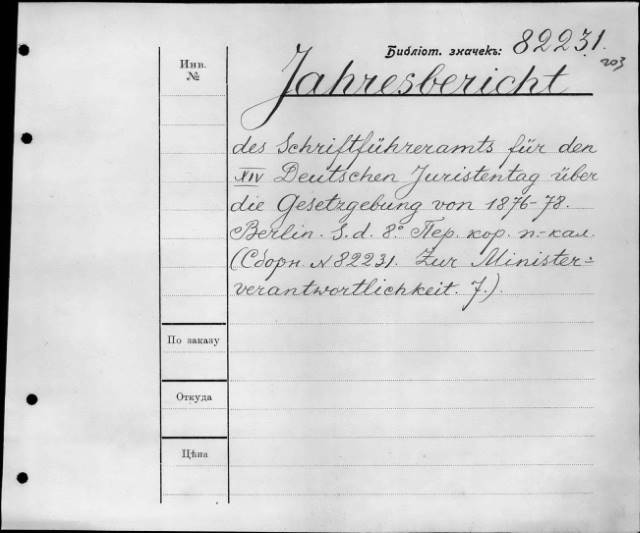 Библіот. значекъ: 82231.
203
Инв.
№
Jahresbericht
des Schriftführeramts für den
XIV Deutschen Juristentag über
die Gesetzgebung von 1876-78.
Berlin. S. d. 8.° Пер. кор. п.-кал.
(Сборн. № 82231. Zur Minister=
verantwortlichkeit. 7.)
По заказу
Откуда
Цѣна